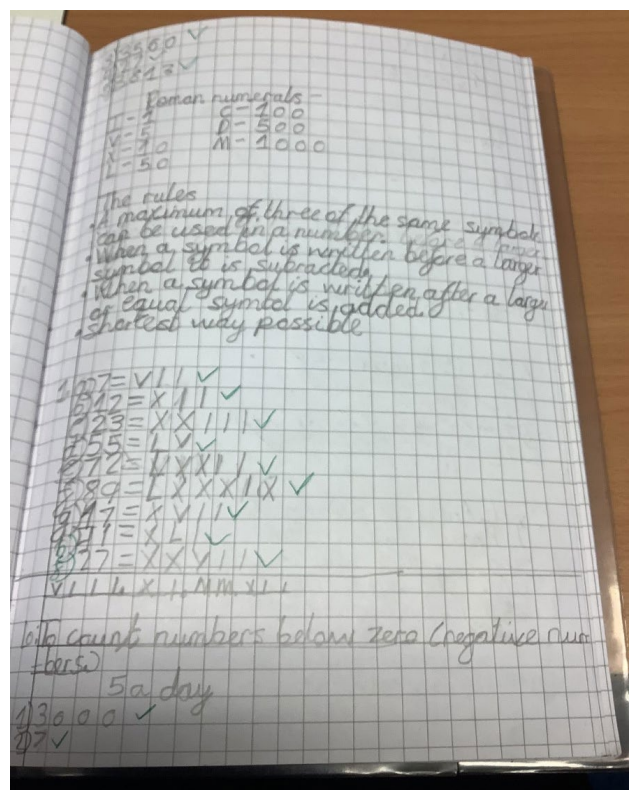 3500 ✓
Roman numerals -
I - 1 C - 100
V - 5 D - 500
X - 10 M - 1000
L - 50
The rules
. A maximum of three of the same symbols
can be used in a number.
. When a symbol is written before a larger
symbol it is subracted.
. When a symbol is written after a larger
or equal symbol is added.
. shortest way possible
1) a) 7 = VII ✓
b) 12 = XII ✓
c) 23 = XXIII ✓
d) 55 = LV ✓
e) 72 = LXXII ✓
f) 89 = LXXXIX ✓
g) 17 = XVII ✓
41 = XLI ✓
27 = XXVII ✓
Lo: To count numbers below zero (negative num
-bers)
5 a day
1) 3000 ✓
2) 7 ✓